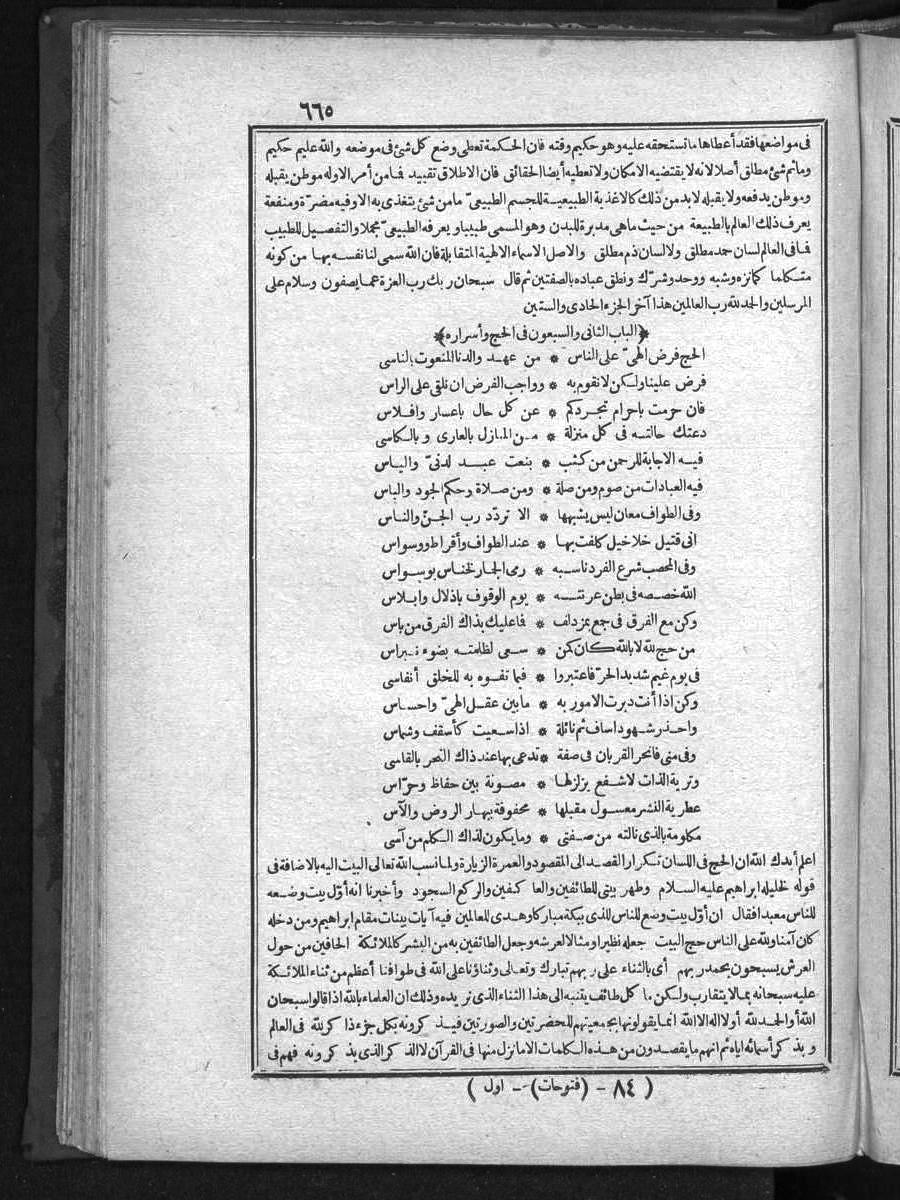 ٦٦٥
فى مواضعها فقد أعطاها ما تستحقه عليه وهو حكيم وقته فان الحكمة تعطى وضع كل شئ فى موضعه والله عليم حكيم
وما ثم شئ مطلق أصلا لانه لا يقتضيه الامكان ولا تعطيه أيضا الحقائق فان الاطلاق تقييد فما من أمر الا وله موطن يقبله
وموطن يدفعه ولا يقبله لا بد من ذلك كالاغذية الطبيعية للجسم الطبيعىّ ما من شئ يتغذى به الا وفيه مضرّة ومنفعة
يعرف ذلك العالم بالطبيعة من حيث ما هى مدبرة للبدن وهو المسمى طبيبا ويعرفه الطبيعىّ مجملا والتفصيل للطبيب
فما فى العالم لسان حمد مطلق ولا لسان ذم مطلق والاصل الاسماء الالهية المتقابلة فان الله سمى لنا نفسه بها من كونه
متكلما كما نزه وشبه ووحد وشرّك ونطق عباده بالصفتين ثم قال سبحان ربك رب العزة عما يصفون وسلام على
المرسلين والحمد لله رب العالمين هذا آخر الجزء الحادى والستين
﴿الباب الثانى والسبعون فى الحج وأسراره﴾
الحج فرض الهىّ على الناس * من عهد والدنا المنعوت بالناسى
فرض علينا ولكن لا نقوم به * وواجب الفرض ان نلقى على الراس
فان حرمت باحرام تجردكم * عن كل حال باعسار وافلاس
دعتك حالته فى كل منزلة * من المنازل بالعارى وبالكاسى
فيه الاجابة للرحمن من كثب * بنعت عبد لدنىّ والياس
فيه العبادات من صوم ومن صلة * ومن صلاة وحكم الجود والباس
وفى الطواف معان ليس يشبهها * الا تردّد رب الجنّ والناس
انى قتيل خلاخيل كلفت بها * عند الطواف وأقراط ووسواس
وفى المحصب شرع الفرد ناسبه * رمى الجمار لخناس بوسواس
الله خصصه فى بطن عرنته * يوم الوقوف باذلال وابلاس
وكن مع الفرق فى جمع بمزدلف * فما عليك بذاك الفرق من باس
من حج لله لا بالله كان كمن * سعى لظلمته بضوء نبراس
فى يوم غيم شديد الحرّ فاعتبروا * فيما تفوه به للخلق أنفاسى
وكن اذا أنت دبرت الامور به * ما بين عقل الهىّ واحساس
واحذر شهود اساف ثم نائلة * اذا سعيت كأسقف وشماس
وفى منى فانحر القربان فى صفة * تدعى بها عند ذاك النحر بالقاسى
وترية الذات لا شفع يزلزلها * مصونة بين حفاظ وحرّاس
عطرية النشر معسول مقبلها * محفوفة ببهار الروض والآس
مكلومة بالذى نالته من صفتى * وما يكون لذاك الكلم من آسى
اعلم أيدك الله ان الحج فى اللسان تكرار القصد الى المقصود والعمرة الزيارة ولما نسب الله تعالى البيت اليه بالاضافة فى
قوله لخليله ابراهيم عليه السلام وطهر بيتى للطائفين والعاكفين والركع السجود وأخبرنا انه أوّل بيت وضعه
للناس معبدا فقال ان أوّل بيت وضع للناس للذى ببكة مباركا وهدى للعالمين فيه آيات بينات مقام ابراهيم ومن دخله
كان آمنا ولله على الناس حج البيت جعله نظيرا ومثالا لعرشه وجعل الطائفين به من البشر كالملائكة الحافين من حول
العرش يسبحون بحمد ربهم أى بالثناء على ربهم تبارك وتعالى وثناؤنا على الله فى طوافنا أعظم من ثناء الملائكة
عليه سبحانه بما لا يتقارب ولكن ما كل طائف يتنبه الى هذا الثناء الذى نريده وذلك ان العلماء بالله اذا قالوا سبحان
الله أو الحمد لله أو لا اله الا الله انما يقولونها بجمعيتهم للحضرتين والصورتين فيذكرونه بكل جزء ذاكر لله فى العالم
وبذكر أسمائه اياه ثم انهم ما يقصدون من هذه الكلمات الا ما نزل منها فى القرآن لا الذكر الذى يذكرونه فهم فى
( ٨٤ - (فتوحات) - اول )